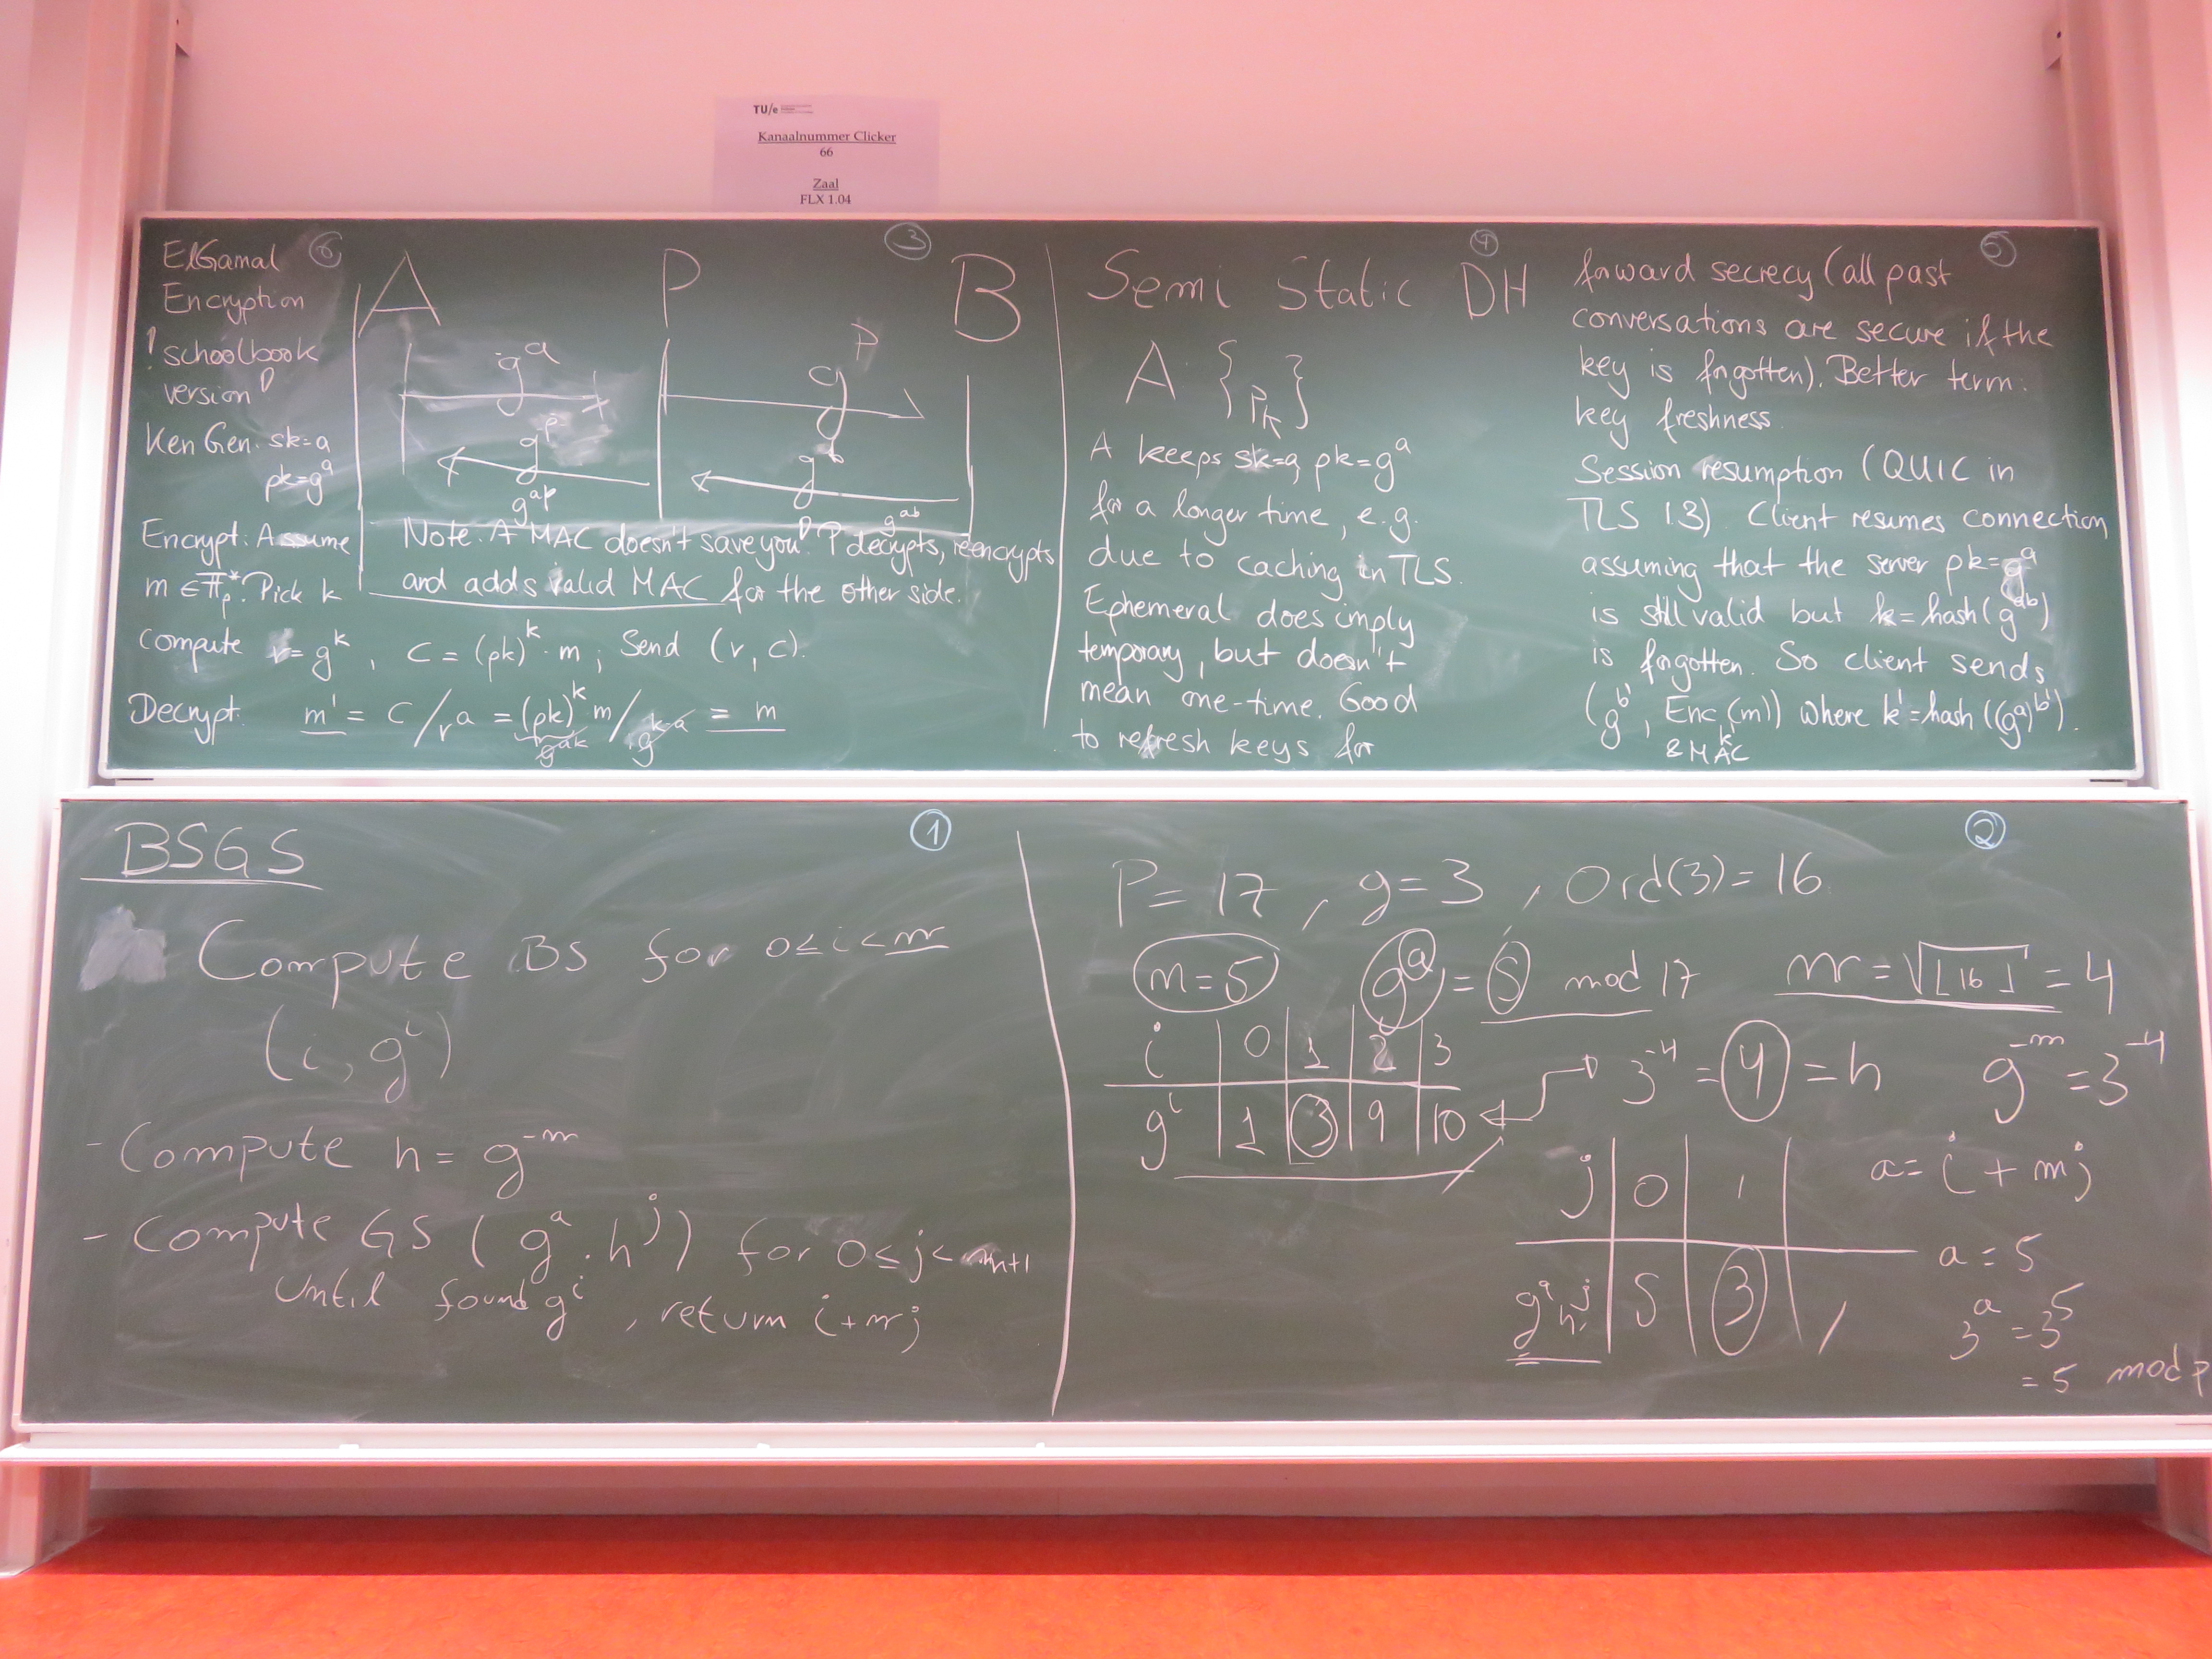 TU/e
Kanaalnummer Clicker
66
Zaal
FLX 1.04
ElGamal ⑥
Encryption
! schoolbook
version !
Ken Gen. sk=a
pk=g^a
Encrypt: Assume
m ∈ F_p^*. Pick k
compute r=g^k, c = (pk)^k · m; Send (r, c).
Decrypt. m' = c/r^a = (pk)^k m/g^{k·a} = m
g^{ak}
③
A P B
g^a g^p
g^p g^b
g^{ap} g^{ab}
Note. A MAC doesn't save you! P decrypts, reencrypts
and adds valid MAC for the other side.
④
Semi Static DH
A: { pk }
A keeps sk=a, pk=g^a
for a longer time, e.g.
due to caching in TLS.
Ephemeral does imply
temporary, but doesn't
mean one-time. Good
to refresh keys for
⑤
forward secrecy (all past
conversations are secure if the
key is forgotten). Better term:
key freshness.
Session resumption (QUIC in
TLS 1.3) Client resumes connection
assuming that the server pk=g^a
is still valid but k=hash(g^{ab})
is forgotten. So client sends
(g^{b'}, Enc_{k'}(m)) where k'=hash((g^a)^{b'}).
& MAC
BSGS ①
Compute BS for 0≤i<m
(i, g^i)
- Compute h = g^{-m}
- Compute GS (g^a · h^j) for 0≤j<m+1
Until found g^i, return i+mj
②
P = 17, g=3, Ord(3)=16
m=5 g^a = 5 mod 17 m = √⌊16⌋ = 4
i 0 1 2 3
g^i 1 3 9 10
3^{-4} = 4 = h g^{-m} = 3^{-4}
j 0 1
g^a h^j 5 3
a = i + mj
a = 5
3^a = 3^5
= 5 mod p